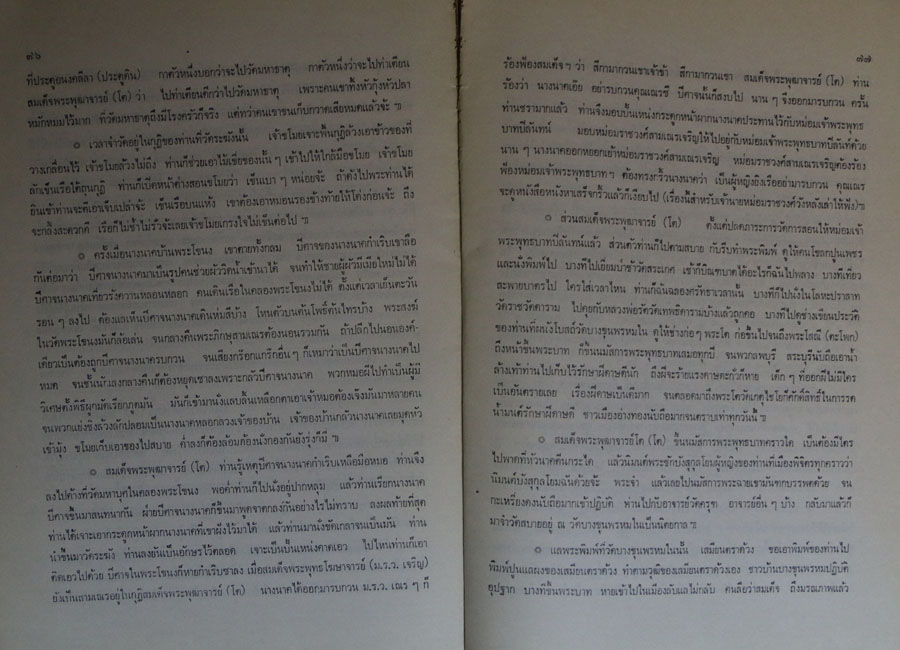 ๗๖
ที่ประตูอนงคลีลา (ประตูดิน) กาตัวหนึ่งบอกว่าจะไปวัดมหาธาตุ กาตัวหนึ่งว่าจะไปท่าเตียน
สมเด็จพระพุฒาจารย์ (โต) ว่า ไปท่าเตียนดีกว่าไปวัดมหาธาตุ เพราะคนเขาทิ้งหัวกุ้งหัวปลา
หมักหมมไว้มาก ที่วัดมหาธาตุถึงมีโรงครัวก็จริง แต่ทว่าคนเขาขนเก็บกวาดเสียหมดแล้วจ้ะ ฯ
๏ เวลาจำวัดอยู่ในกุฏิของท่านที่วัดระฆังนั้น เจ้าขโมยเจาะพื้นกุฏิล้วงเอาข้าวของที่
วางเกลื่อนไว้ เจ้าขโมยล้วงไม่ถึง ท่านก็ช่วยเอาไม้เขี่ยของนั้น ๆ เข้าไปให้ใกล้มือขโมย เจ้าขโมย
ลักเข็นเรือใต้ถุนกุฏิ ท่านก็เปิดหน้าต่างสอนขโมยว่า เข็นเบา ๆ หน่อยจ้ะ ถ้าดังไปพระท่านได้
ยินเข้าท่านจะตีเอาเจ็บเปล่าจ้ะ เข็นเรือบนแห้ง เขาต้องเอาหมอนรองข้างท้ายให้โด่งก่อนจ้ะ ถึง
จะกลิ้งสะดวกดี เรือก็ไม่ช้ำไม่รั่วจ้ะเลยเจ้าขโมยเกรงใจไม่เข็นต่อไป ฯ
๏ ครั้งเมื่อนางนาคบ้านพระโขนง เขาตายทั้งกลม ปีศาจของนางนาคกำเริบเขาลือ
กันต่อมาว่า ปีศาจนางนาคมาเป็นรูปคนช่วยผัววิดน้ำเข้านาได้ จนทำให้ชายผู้ผัวมีเมียใหม่ไม่ได้
ปีศาจนางนาคเที่ยวรังควานหลอนหลอก คนเดินเรือในคลองพระโขนงไม่ได้ ตั้งแต่เวลาเย็นตะวัน
รอน ๆ ลงไป ต้องแลเห็นปีศาจนางนาคเดินห่มสีบ้าง โหนตัวบนต้นโพธิ์ต้นไทรบ้าง พระสงฆ์
ในวัดพระโขนงมันก็ล้อเล่น จนกลางคืนพระภิกษุสามเณรต้องนอนรวมกัน ถ้าปลีกไปนอนองค์-
เดียวเป็นต้องถูกปีศาจนางนาครบกวน จนเสียงกร๊อกแกร๊กอื่น ๆ ก็เหมาว่าเป็นปีศาจนางนาคไป
หมด จนชั้นนักเลงกลางคืนก็ต้องหยุดเซาลงเพราะกลัวปีศาจนางนาค พวกหมอผีไปทำเป็นผู้มี
วิเศษตั้งพิธีผูกมัดเรียกภูตมัน มันก็เข้ามานั่งแลบลิ้นเหลือกตาเอาเจ้าหมอต้องเจ๊งมันมาหลายคน
จนพวกแย่งชิงล้วงลักปลอมเป็นนางนาคหลอกลวงเจ้าของบ้าน เจ้าของบ้านกลัวนางนาคเลยมุดหัว
เข้ามุ้ง ขโมยเก็บเอาของไปสบาย ค่ำลงก็ต้องล้อมต้องนั่งกองกันยังรุ่งก็มี ฯ
๏ สมเด็จพระพุฒาจารย์ (โต) ท่านรู้เหตุปีศาจนางนาคกำเริบเหลือมือหมอ ท่านจึง
ลงไปค้างที่วัดมหาบุศในคลองพระโขนง พอค่ำท่านก็ไปนั่งอยู่ปากหลุม แล้วท่านเรียกนางนาค
ปีศาจขึ้นมาสนทนากัน ฝ่ายปีศาจนางนาคก็ขึ้นมาพูดจาตกลงกันอย่างไรไม่ทราบ ลงผลท้ายที่สุด
ท่านได้เจาะเอากระดูกหน้าผากนางนาคที่เขาฝังไว้มาได้ แล้วท่านมานั่งขัดเกลาจนเป็นมัน ท่าน
นำขึ้นมาวัดระฆัง ท่านลงยันต์เป็นอักษรไว้ตลอด เจาะเป็นปั้นเหน่งคาดเอว ไปไหนท่านก็เอา
ติดเอวไปด้วย ปีศาจในพระโขนงก็หายกำเริบซาลง เมื่อสมเด็จพระพุทธโฆษาจารย์ (ม.ร.ว. เจริญ)
ยังเป็นสามเณรอยู่ในกุฏิสมเด็จพระพุฒาจารย์ (โต) นางนาคได้ออกมารบกวน ม.ร.ว. เณร ๆ ก็
๗๗
ร้องฟ้องสมเด็จฯ ว่า สีกามากวนเขาเจ้าข้า สีกามากวนเขา สมเด็จพระพุฒาจารย์ (โต) ท่าน
ร้องว่า นางนาคเอ๊ย อย่ารบกวนคุณเณรซี ปีศาจนั้นก็สงบไป นาน ๆ จึงออกมารบกวน ครั้น
ท่านชรามากแล้ว ท่านจึงมอบปั้นเหน่งกระดูกหน้าผากนางนาคประทานไว้กับหม่อมเจ้าพระพุทธ
บาทปิลันทน์ มอบหม่อมราชวงศ์สามเณรเจริญให้ไปอยู่กับหม่อมเจ้าพระพุทธบาทปิลันทน์ด้วย
นาน ๆ นางนาคออกหยอกเย้าหม่อมราชวงศ์สามเณรเจริญ หม่อมราชวงศ์สามเณรเจริญต้องร้อง
ฟ้องหม่อมเจ้าพระพุทธบาทฯ ต้องทรงกริ้วนางนาคว่า เป็นผู้หญิงยิงเรืออย่ามารบกวน คุณเณร
จะดูหนังสือหนังหาเสร็จกริ้วแล้วก็เงียบไป (เรื่องนี้สำหรับเจ้านายหม่อมราชวงศ์วังหลังเล่าให้ฟัง) ฯ
๏ ส่วนสมเด็จพระพุฒาจารย์ (โต) ตั้งแต่ปลดภาระการวัดการสอนให้หม่อมเจ้า
พระพุทธบาทปิลันทน์แล้ว ส่วนตัวท่านก็ไปตามสบาย กับรีบทำพระพิมพ์ ดูให้คนโขลกปูนเพชร
และนั่งพิมพ์ไป บางทีไปเยี่ยมป่าช้าวัดสระเกศ เช้าก็บิณฑบาตได้อะไรก็ฉันไปพลาง บางทีเที่ยว
สะพายบาตรไป ใครใส่เวลาไหน ท่านก็ฉันฉลองศรัทธาเวลานั้น บางทีก็ไปนั่งในโลหะปราสาท
วัดราชนัดดาราม ไปคุยกับหลวงพ่อรัดวัดเทพธิดารามบ้างแล้วถูกคอ บางทีไปดูช่างเขียนประวัติ
ของท่านที่ผนังโบสถ์วัดบางขุนพรหมใน ดูให้ช่างก่อ ๆ พระโต ก่อขึ้นไปจนถึงพระโสณี (ตะโพก)
ถึงหน้าขึ้นพระบาท ก็ขึ้นนมัสการพระพุทธบาทเสมอทุกปี จนพวกลพบุรี สระบุรีนับถือเอาน้ำ
ล้างเท้าท่านไปเก็บไว้รักษาฝีดาษดีนัก ถึงฝีจะร้ายแรงดาษตะกั่วก็หาย เด็ก ๆ ที่ออกฝีไม่มีใคร
เป็นอันตรายเลย เรื่องฝีดาษเป็นดีมาก จนตลอดมาถึงพระโตวัดเกตุไชโยก็ศักดิ์สิทธิ์ในการรด
น้ำมนต์รักษาฝีดาษดี ชาวเมืองอ่างทองนับถือมากจนตราบเท่าทุกวันนี้ ฯ
๏ สมเด็จพระพุฒาจารย์โต (โต) ขึ้นนมัสการพระพุทธบาทคราวใด เป็นต้องมีไตร
ไปพาดที่หัวนาคตีนกระได แล้วนิมนต์พระชักบังสุกุลโยมผู้หญิงของท่านที่เมืองพิจิตรทุกคราวว่า
นิมนต์บังสุกุลโยมฉันด้วยจ้ะ พระจ๋า แล้วเลยไปนมัสการพระฉายเขามันฑกบรรพตด้วย จน
กะเหรี่ยงดงนับถือมากเข้าปฏิบัติ ท่านไปกับอาจารย์วัดครุฑ อาจารย์อื่น ๆ บ้าง กลับมาแล้วก็
มาจำวัดสบายอยู่ ณ วัดบางขุนพรหมในเป็นนิตยกาล ฯ
๏ แลพระพิมพ์ที่วัดบางขุนพรหมในนั้น เสมียนตราด้วง ขอเอาพิมพ์ของท่านไป
พิมพ์ปูนแลผงของเสมียนตราด้วง ทำตามวุฒิของเสมียนตราด้วงเอง ชาวบ้านบางขุนพรหมปฏิบัติ
อุปฐาก บางทีขึ้นพระบาท หายเข้าไปในเมืองลับแลไม่กลับ คนลือว่าสมเด็จ ถึงมรณภาพแล้ว